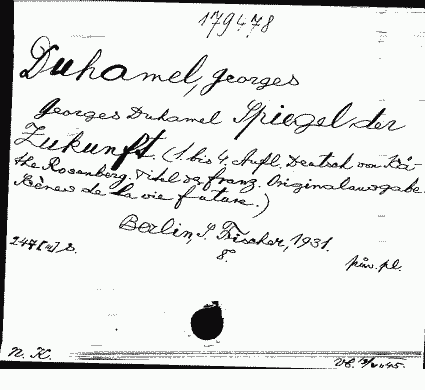 179478
Duhamel, Georges
Georges Duhamel Spiegel der
Zukunft. (1. bis 4. Aufl. Deutsch von Kä-
the Rosenberg. Titel der franz. Originalausgabe:
Scènes de la vie future.)
Berlin, S. Fischer, 1931.
8°.
247[u] S.
növ. pl.
N. K.